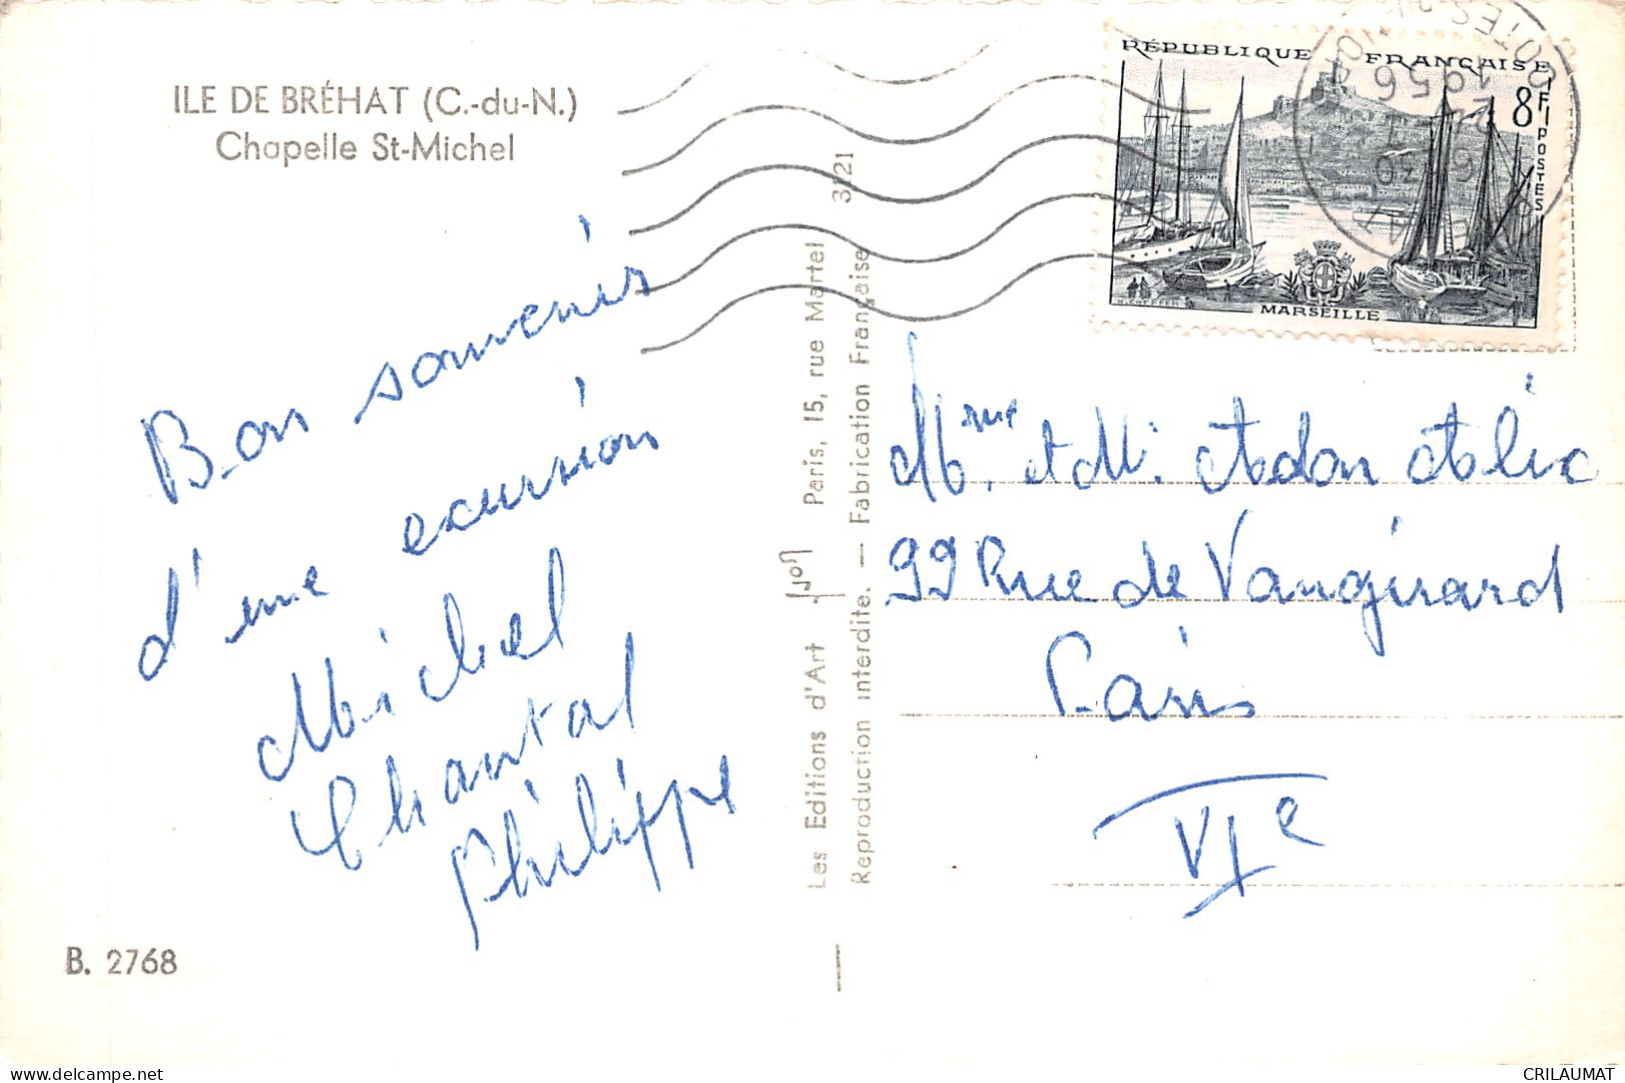 ILE DE BRÉHAT (C.-du-N.)
Chapelle St-Michel
Bon souvenir
d'une excursion
Michel
Chantal
Philippe
B. 2768
Les Editions d'Art Yvon Paris, 15, rue Martel
Reproduction interdite. — Fabrication Française
3121
RÉPUBLIQUE FRANÇAISE
8F
POSTES
MARSEILLE
1956
Mme et M. Adon Alix
99 Rue de Vaugirard
Paris
VIe
CRILAUMAT